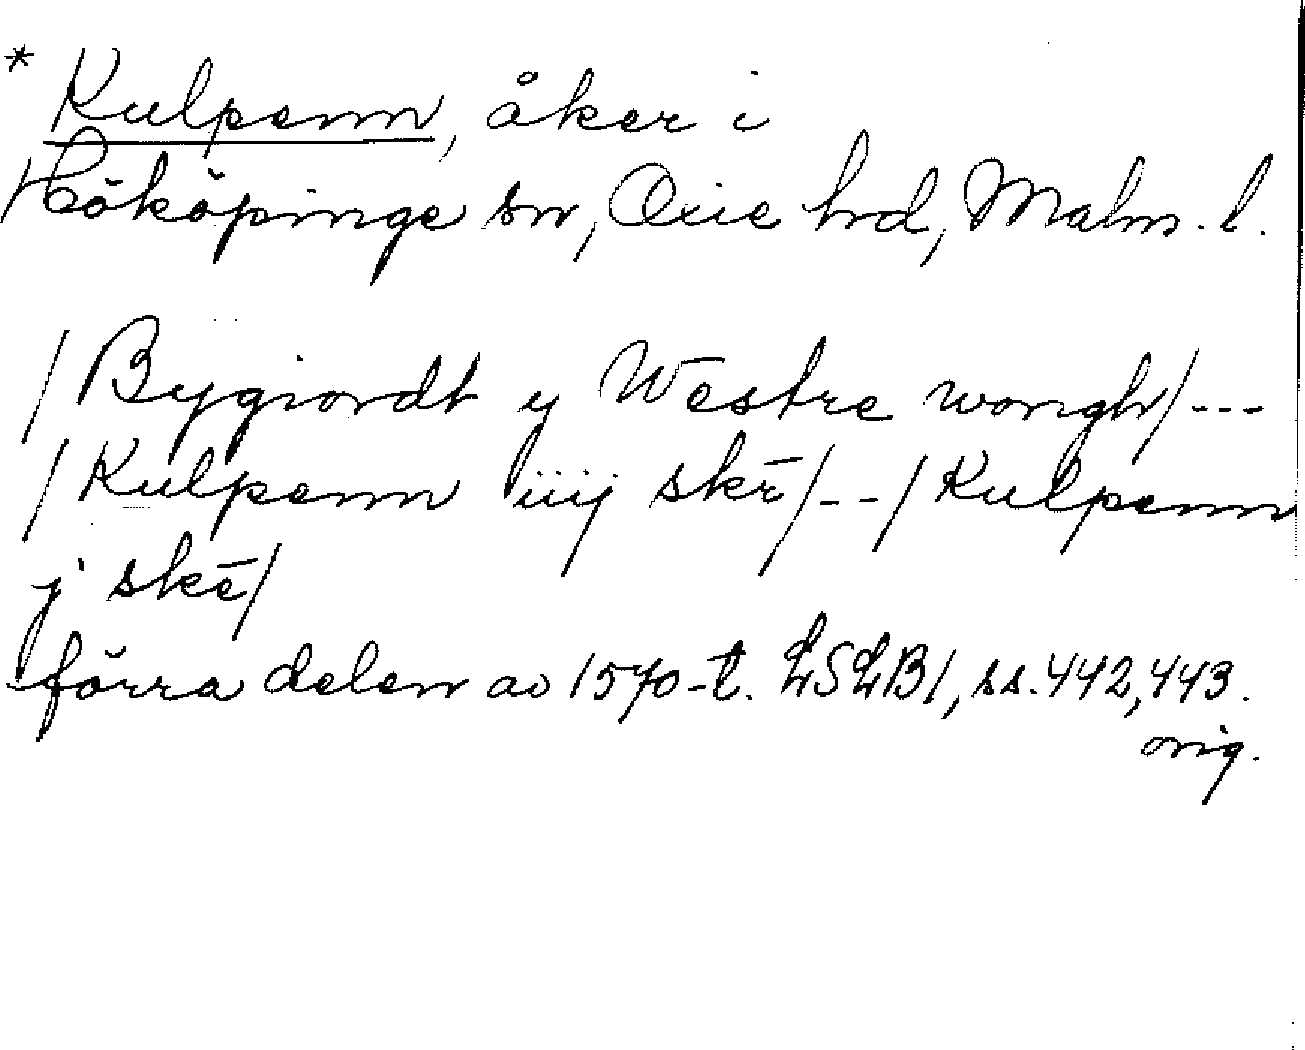 * Kulpenn, åker i
Hököpinge sn, Oxie hrd, Malm. l.
/Bygiordt y Westre wongh/---
/Kulpenn iiij skē/--/Kulpenn
j skē/
förra delen av 1570-t. LSLB1, ss. 442, 443.
orig.